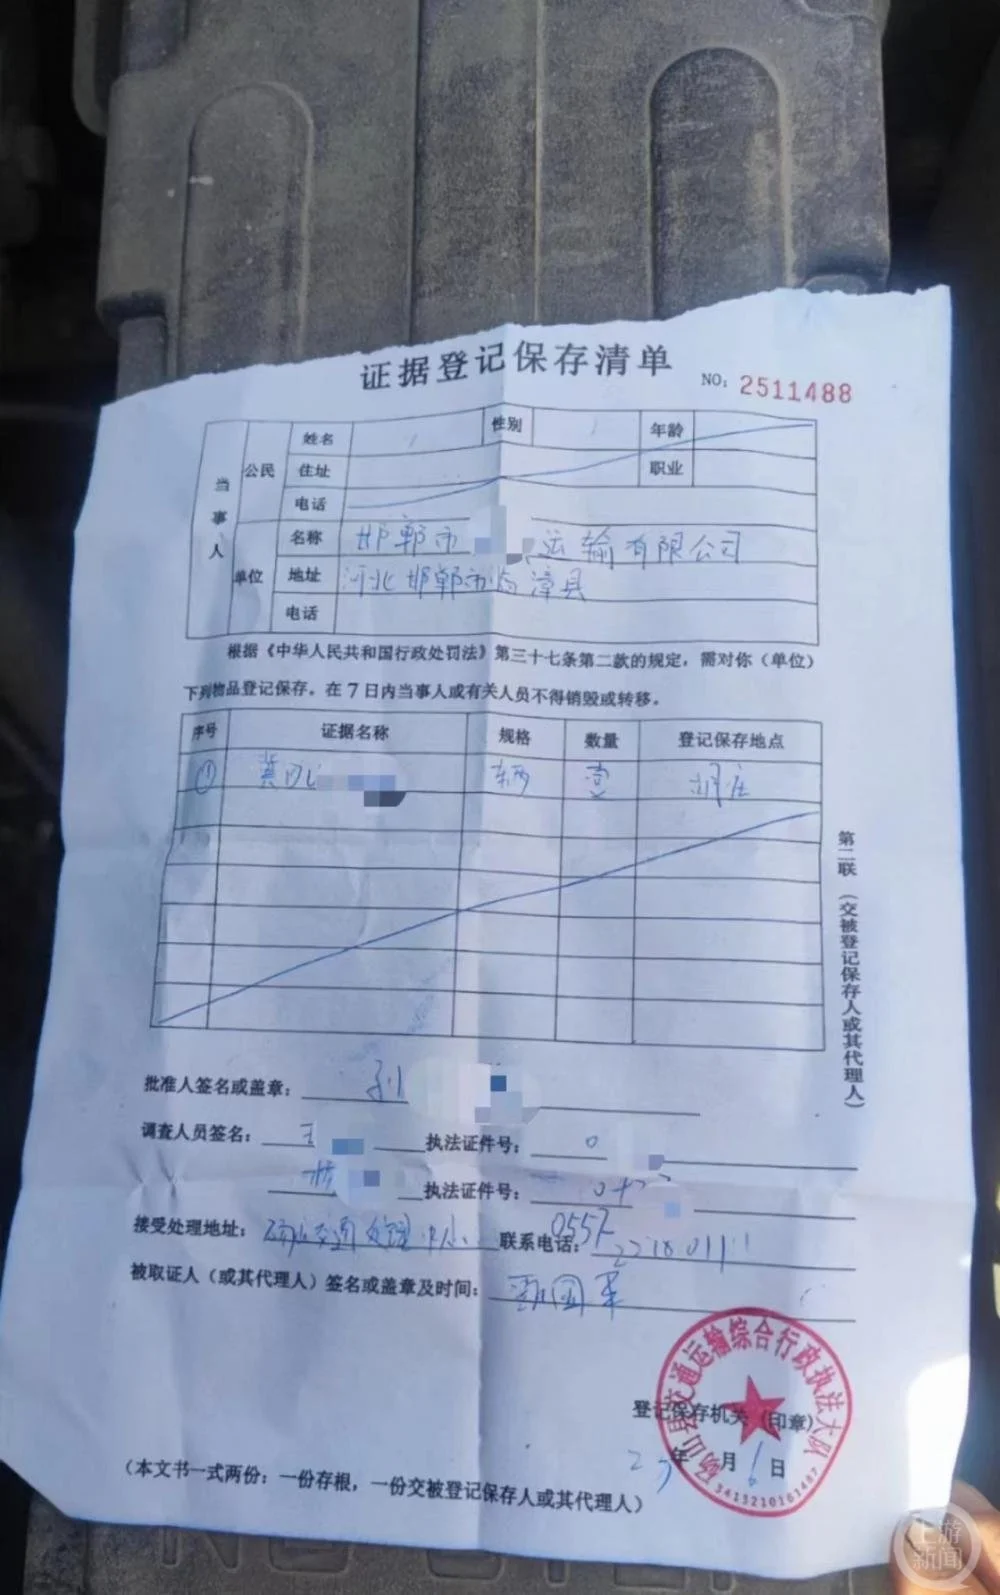 证据登记保存清单
NO: 2511488
当事人
公民
姓名 性别 年龄
住址 职业
电话
单位
名称 邯郸市 运输有限公司
地址 河北邯郸市临漳县
电话
根据《中华人民共和国行政处罚法》第三十七条第二款的规定，需对你（单位）
下列物品登记保存。在7日内当事人或有关人员不得销毁或转移。
序号 证据名称 规格 数量 登记保存地点
① 冀D 辆 壹
第二联（交被登记保存人或其代理人）
批准人签名或盖章：
调查人员签名： 王 执法证件号： 0
执法证件号： 04
接受处理地址： 砀山交通处理中心 联系电话： 0557
被取证人（或其代理人）签名或盖章及时间： 国军
登记保存机关（印章）
年 月 6 日
砀山县交通运输综合行政执法大队
3413210161487
（本文书一式两份：一份存根，一份交被登记保存人或其代理人）
上游新闻